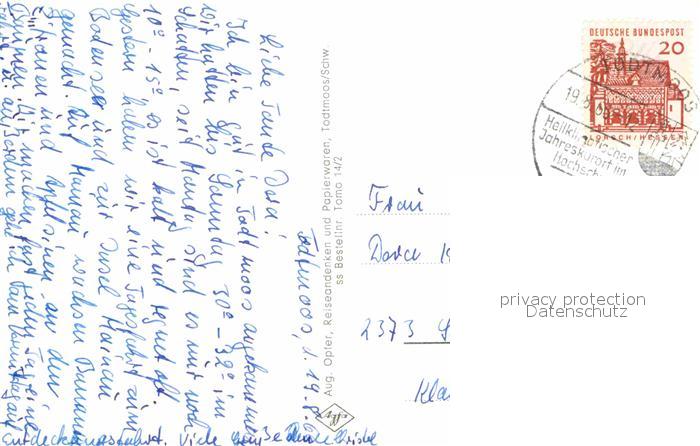 Todtmoos, 1. 19.8.
Liebe Tante Dora!
Ich bin gut in Todtmoos angekommen
Wir hatten bis Samstag 30°-32° im
Schatten, seit Montag sind es nur noch
10°-15° es ist kalt und regnet oft
gestern haben wir eine Tagesfahrt zum
Bodensee und zur Insel Mainau
gemacht. Auf Mainau wachsen Bananen
Zitronen und Apfelsinen an den
Bäumen. Wir machen fast jeden Tag eine
außerdem gehe ich
Entdeckungsfahrt. Viele Grüße Deine
Aug. Opter, Reiseandenken und Papierwaren, Todtmoos/Schw.
ss Bestellnr. Tomo 14/2
DEUTSCHE BUNDESPOST
20
LORSCH/HESSEN
TODTMOOS
19.8.
Heilklimatischer
Jahreskurort im
Hochsch
Frau
Dora
2373
Kla
privacy protection
Datenschutz